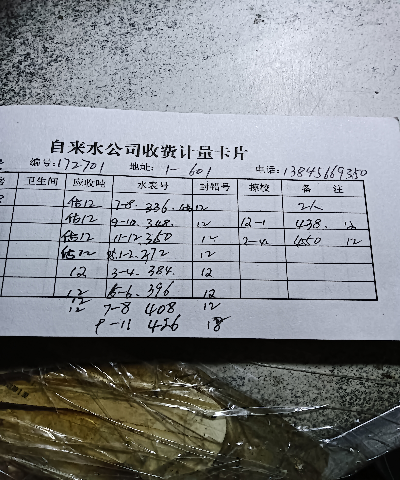 自来水公司收费计量卡片
编号:172701 地址: 1-601 电话:13845669350
卫生间 应收吨 水表号 封铅号 抄校 备 注
估12 7-8. 336. 估12 2人
估12 9-10. 348. 12 12-1 438. 12
估12 11-12. 360 12 2-4 450 12
估12 1-2. 372 12
12 3-4. 384. 12
12 5-6. 396 12
12 7-8 408 12
9-11 426 18